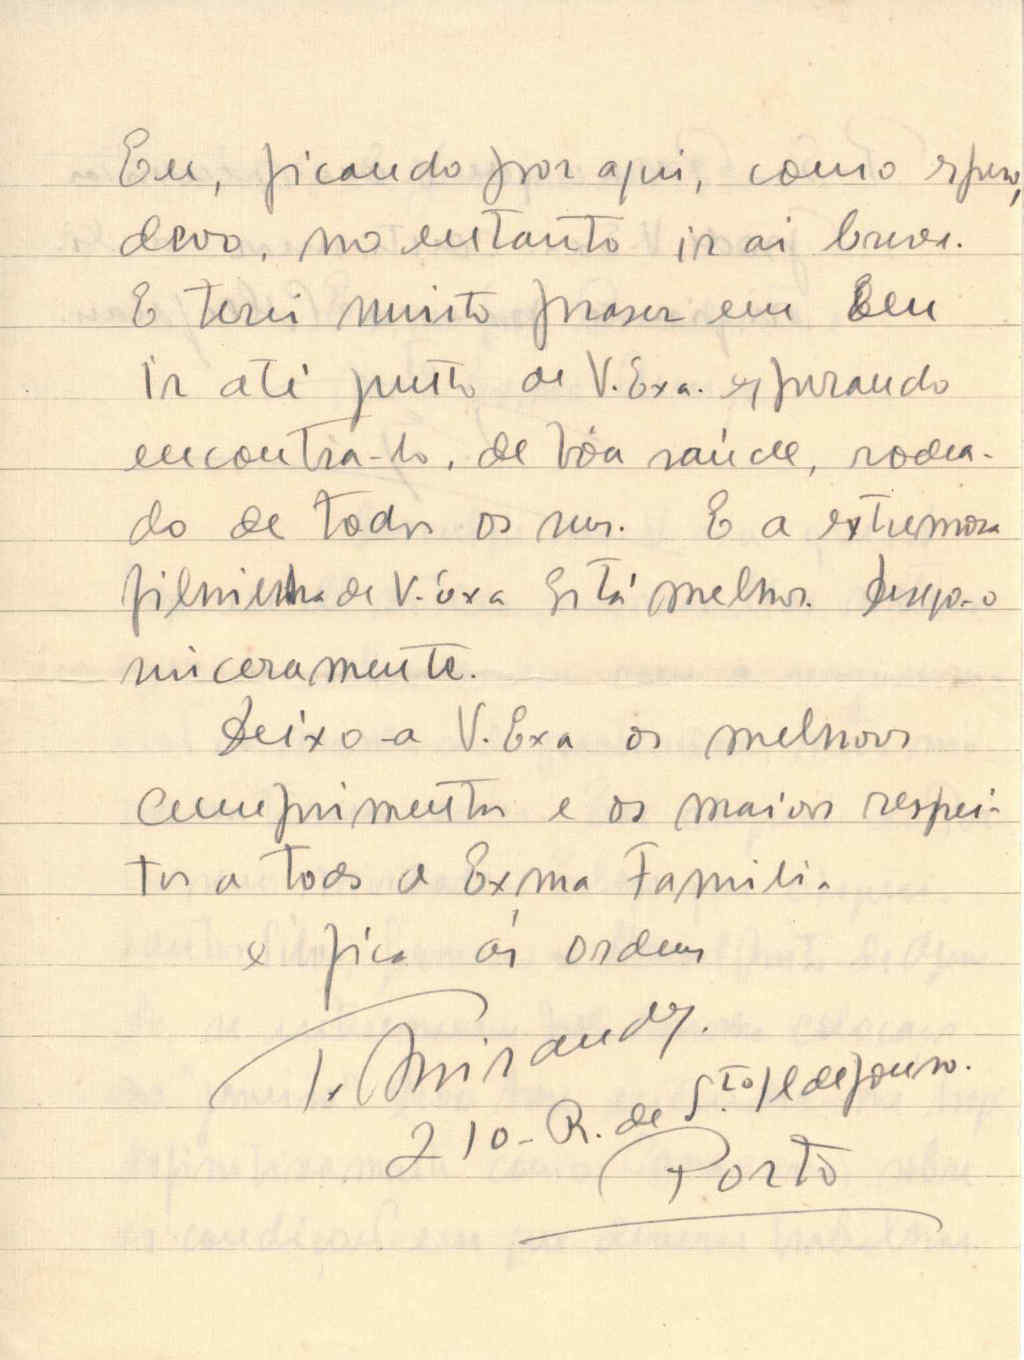 Eu, ficando por aqui, como espero,
devo, no entanto ir ai breve.
E terei muito praser em
ir até junto de V. Exa. esperando
encontra-lo, de bôa saúde, rodea-
do de todos os seus. E a extremosa
filhinha de V. Exa Está melhor. Desejo-o
sinceramente.
Deixo-a V. Exa os melhores
cumprimentos e os maiores respei-
tos a toda a Exma Familia
e fica ás ordens
T. Mirandez.
210-R. de S.to Ildefonso.
Porto